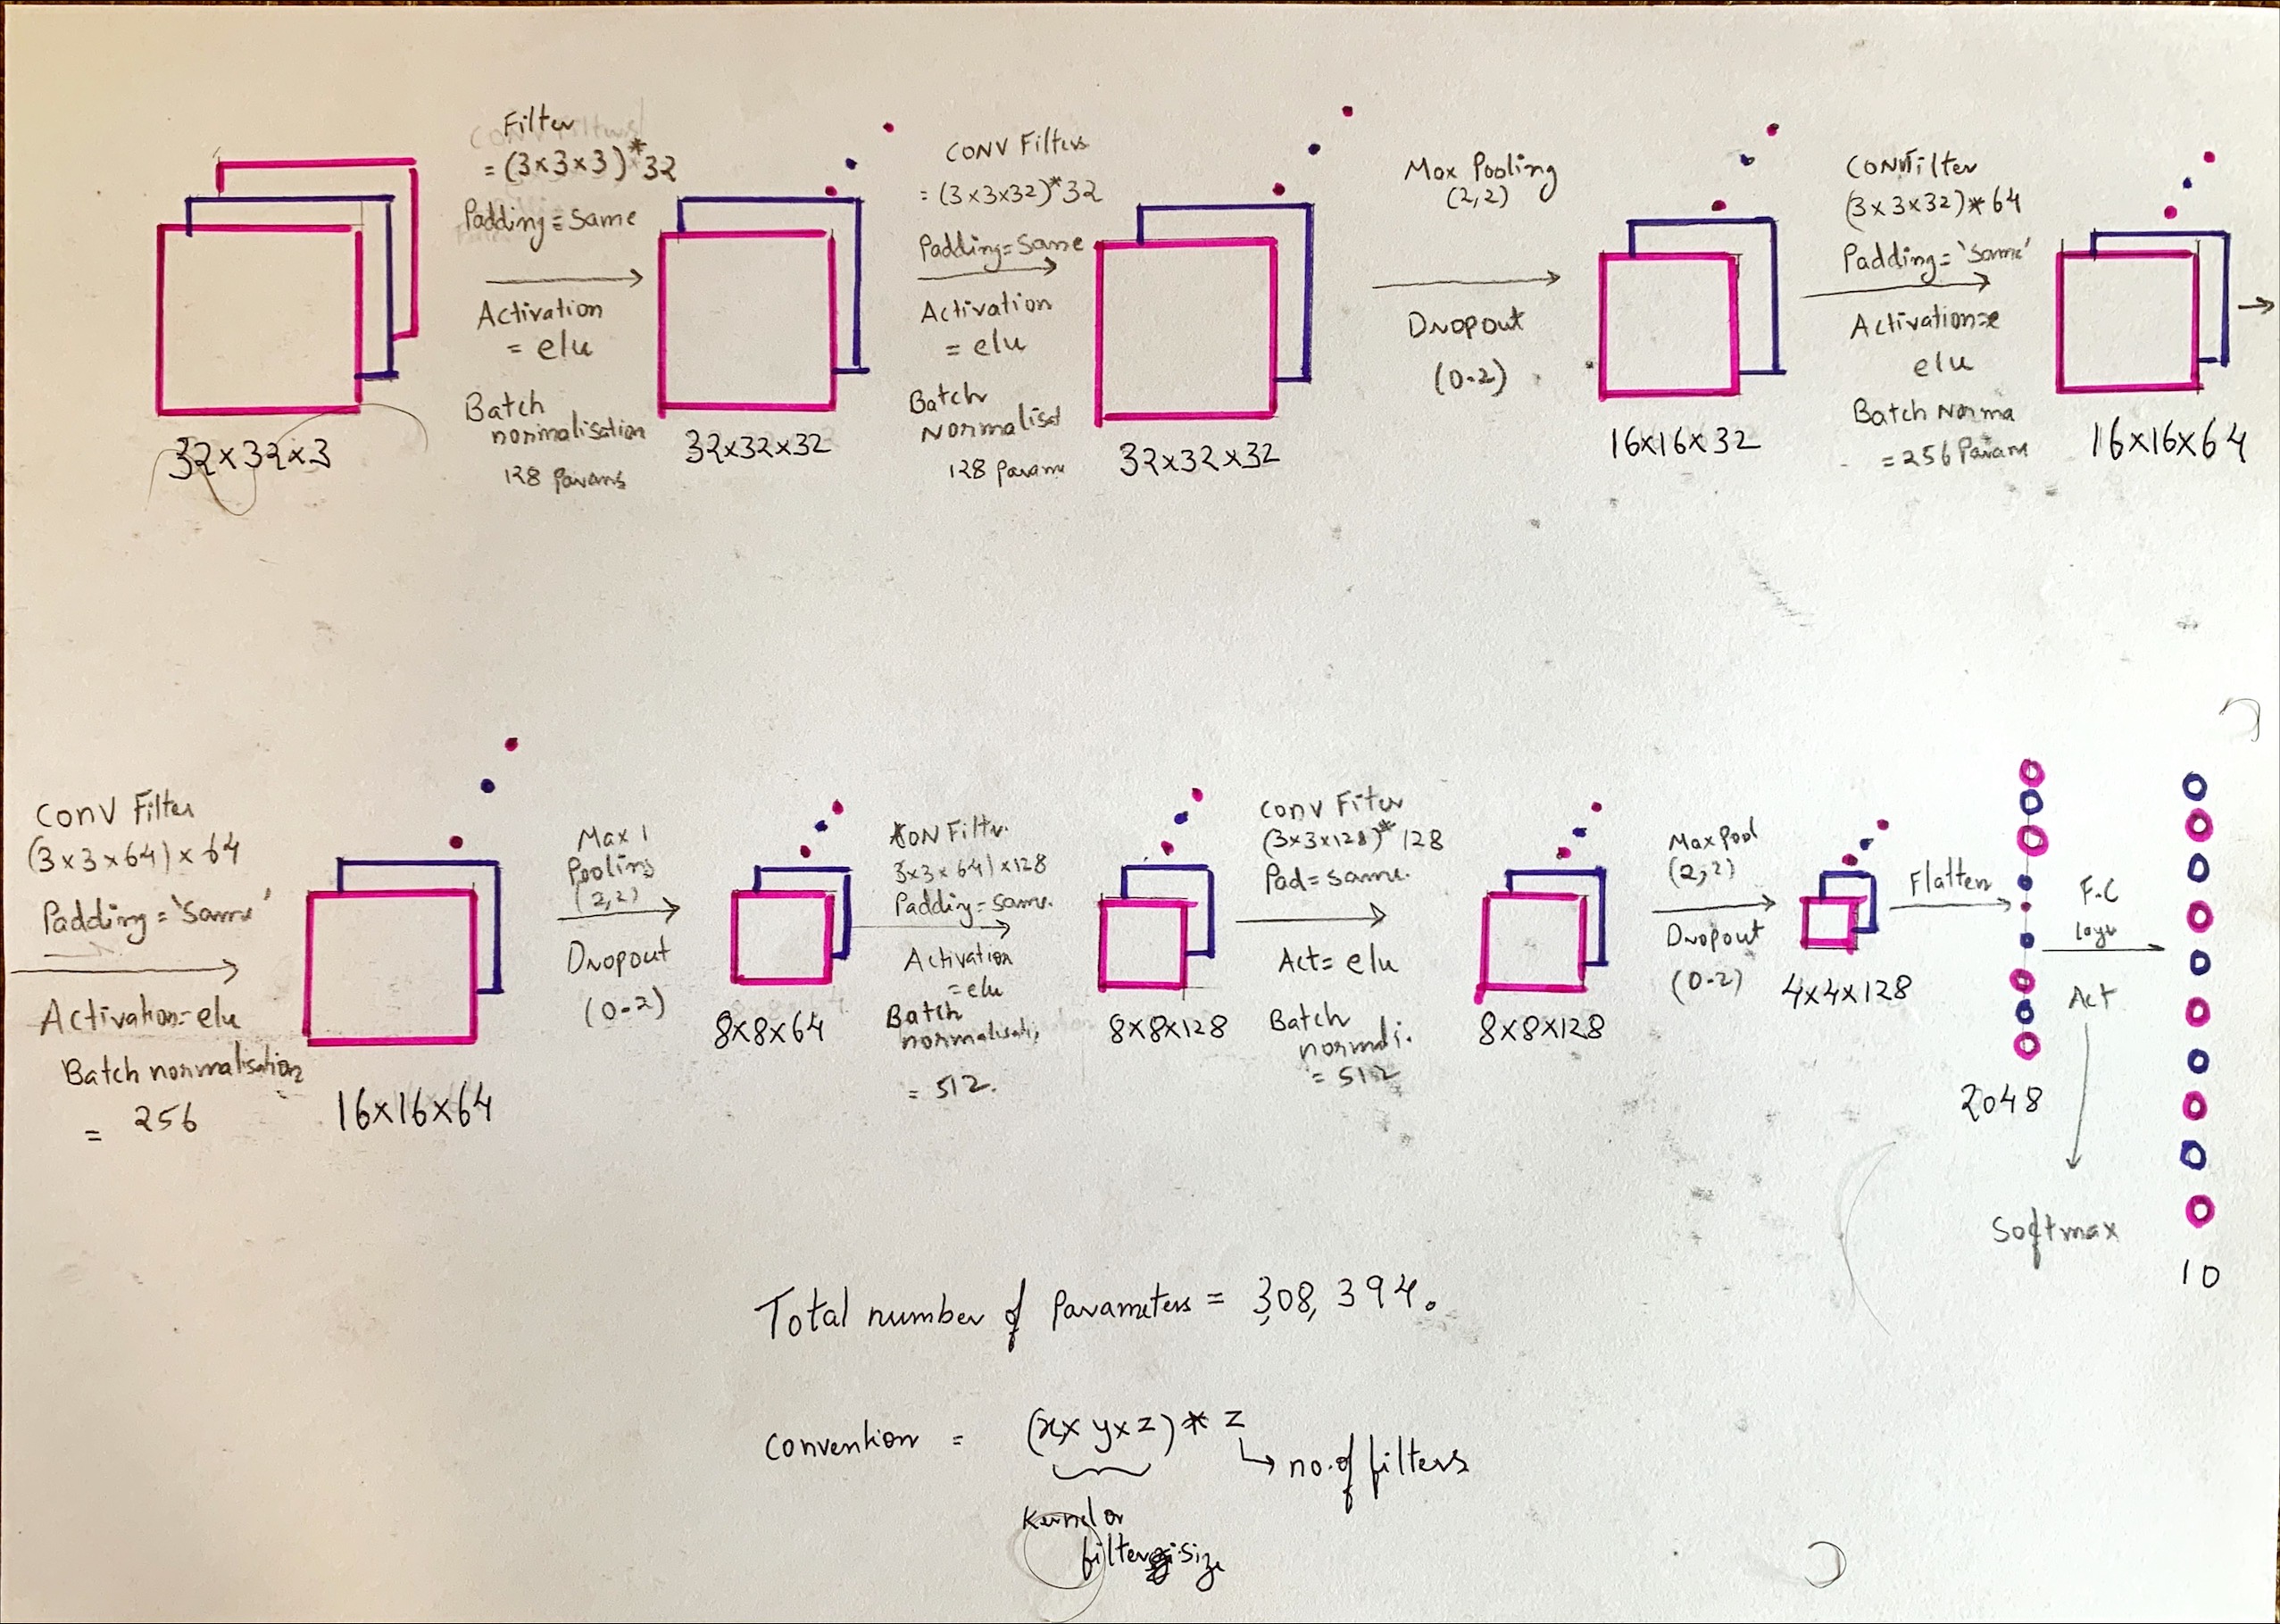 Filter
= (3x3x3)*32
Padding = Same
Activation
= elu
Batch
normalisation
128 Params
32x32x3
32x32x32
CONV Filters
= (3x3x32)*32
Padding = Same
Activation
= elu
Batch
Normalisat
128 Param
32x32x32
Max Pooling
(2,2)
Dropout
(0.2)
16x16x32
CONV Filter
(3x3x32)*64
Padding = 'Same'
Activation=e
elu
Batch Norma
= 256 Param
16x16x64
Conv Filter
(3x3x64)x64
Padding = 'Same'
Activation=elu
Batch normalisation
= 256
16x16x64
Max
Pooling
(2,2)
Dropout
(0.2)
8x8x64
CON Filtr.
3x3x64)x128
Padding = Same.
Activation
=elu
Batch
normalisati
= 512.
8x8x128
Conv Fiter
(3x3x128)*128
Pad = Same.
Act = elu
Batch
normali.
= 512
8x8x128
Max Pool
(2,2)
Dropout
(0.2)
4x4x128
Flatten
2048
F.C
layr
Act
Softmax
10
Total number of Parameters = 308,394.
Convention = (x x y x z) * z
no. of filters
Kernel or
filter size